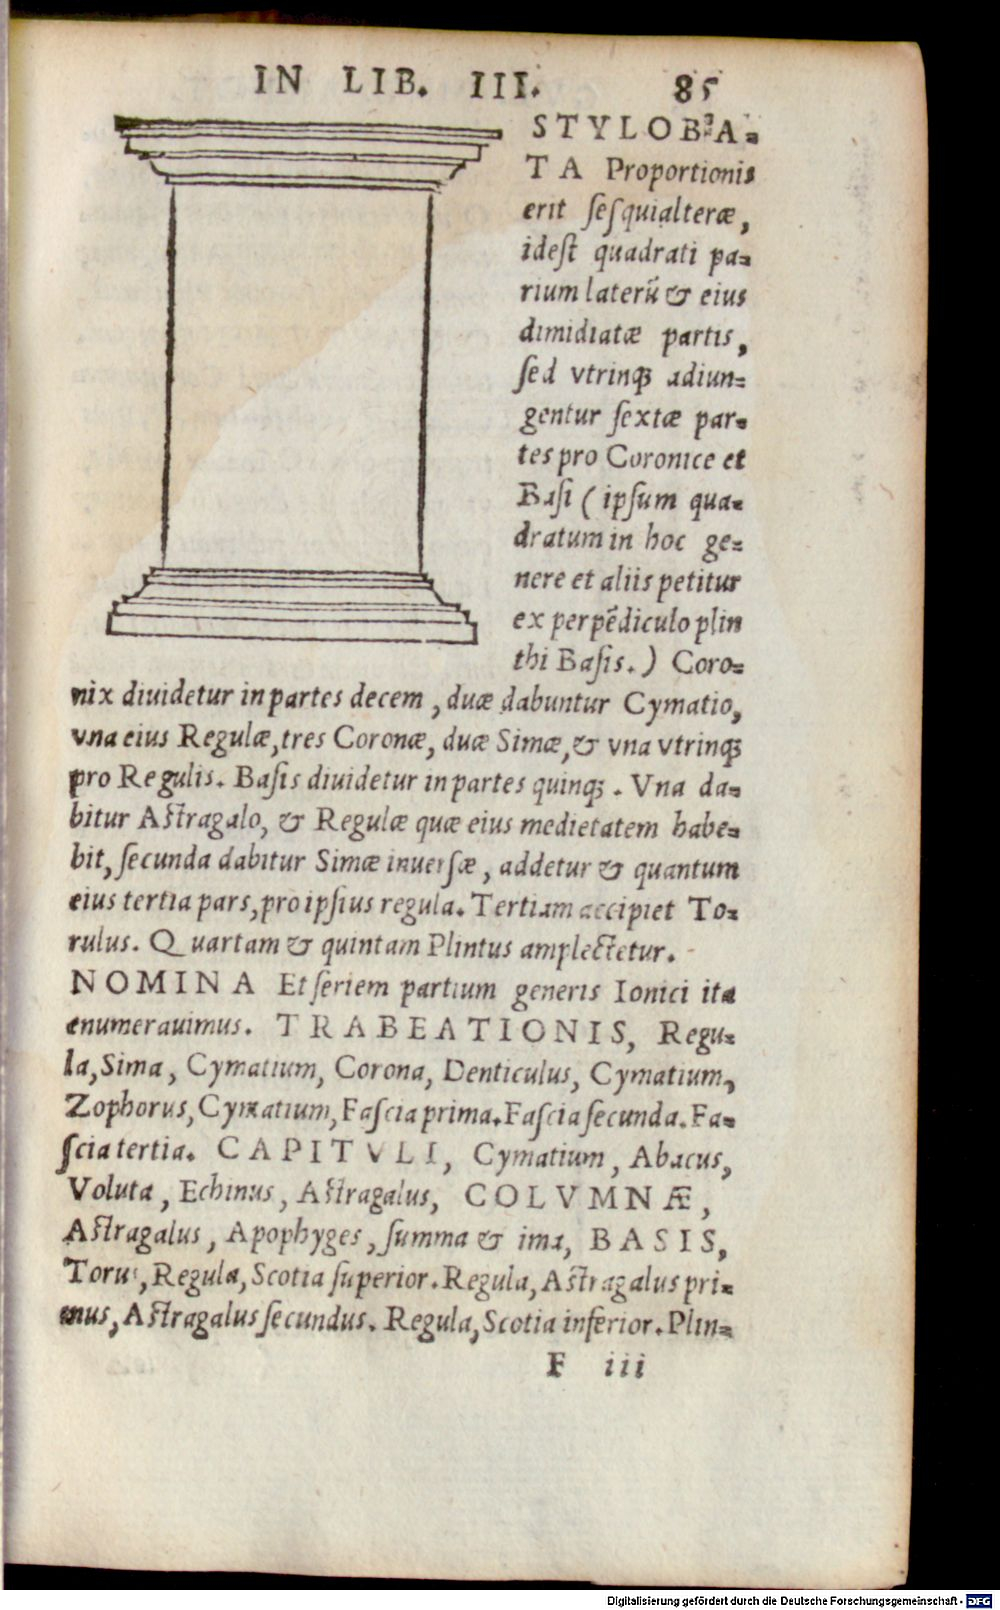 IN LIB. III. 85
STYLOBA-
TA Proportionis
erit ſeſquialteræ,
idest quadrati pa-
rium laterū & eius
dimidiatæ partis,
ſed vtrinqꝫ adiun-
gentur ſextæ par-
tes pro Coronice et
Baſi ( ipſum qua-
dratum in hoc ge-
nere et aliis petitur
ex perpēdiculo plin
thi Baſis. ) Coro-
nix diuidetur in partes decem, duæ dabuntur Cymatio,
vna eius Regulæ, tres Coronæ, duæ Simæ, & vna vtrinqꝫ
pro Regulis. Baſis diuidetur in partes quinqꝫ. Vna da-
bitur Astragalo, & Regulæ quæ eius medietatem habe-
bit, ſecunda dabitur Simæ inuerſæ, addetur & quantum
eius tertia pars, pro ipſius regula. Tertiam accipiet To-
rulus. Quartam & quintam Plintus amplectetur.
NOMINA Et ſeriem partium generis Ionici ita
enumerauimus. TRABEATIONIS, Regu-
la, Sima, Cymatium, Corona, Denticulus, Cymatium,
Zophorus, Cymatium, Faſcia prima. Faſcia ſecunda. Fa-
ſcia tertia. CAPITVLI, Cymatium, Abacus,
Voluta, Echinus, Astragalus, COLVMNÆ,
Astragalus, Apophyges, ſumma & ima, BASIS,
Torus, Regula, Scotia ſuperior. Regula, Astragalus pri-
mus, Astragalus ſecundus. Regula, Scotia inferior. Plin-
F iii
Digitalisierung gefördert durch die Deutsche Forschungsgemeinschaft - DFG